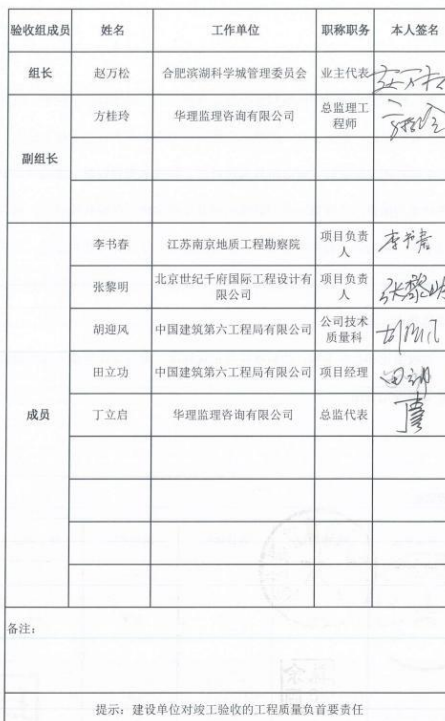 验收组成员 姓名 工作单位 职称职务 本人签名
组长 赵万松 合肥滨湖科学城管理委员会 业主代表 赵万松
副组长 方桂玲 华理监理咨询有限公司 总监理工
程师 方桂玲
成员 李书春 江苏南京地质工程勘察院 项目负责
人 李书春
张黎明 北京世纪千府国际工程设计有
限公司 项目负责
人 张黎明
胡迎风 中国建筑第六工程局有限公司 公司技术
质量科 胡迎风
田立功 中国建筑第六工程局有限公司 项目经理 田立功
丁立启 华理监理咨询有限公司 总监代表
备注:
提示:建设单位对竣工验收的工程质量负首要责任